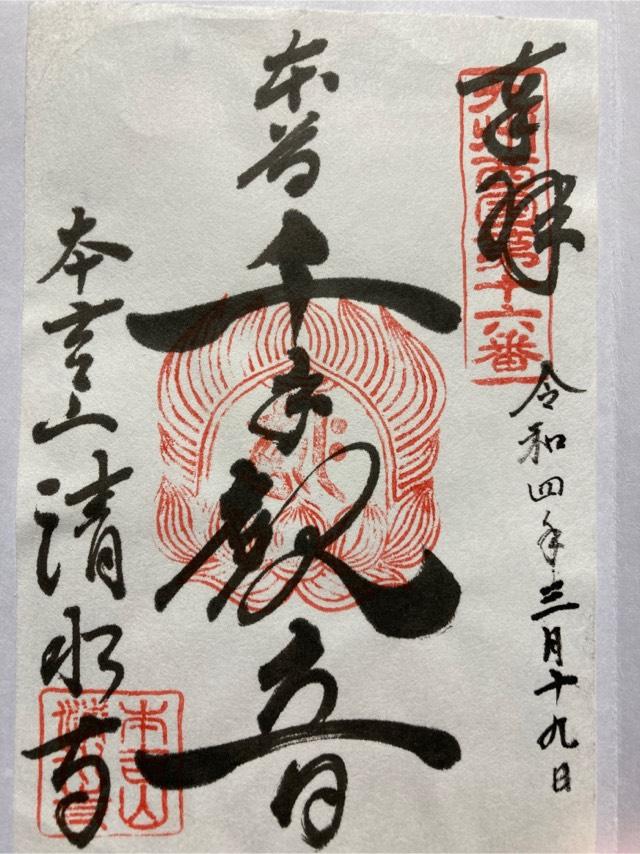 奉拝
九州西国第十六番
令和四年三月十九日
本尊
千手観音
本吉山
清水寺